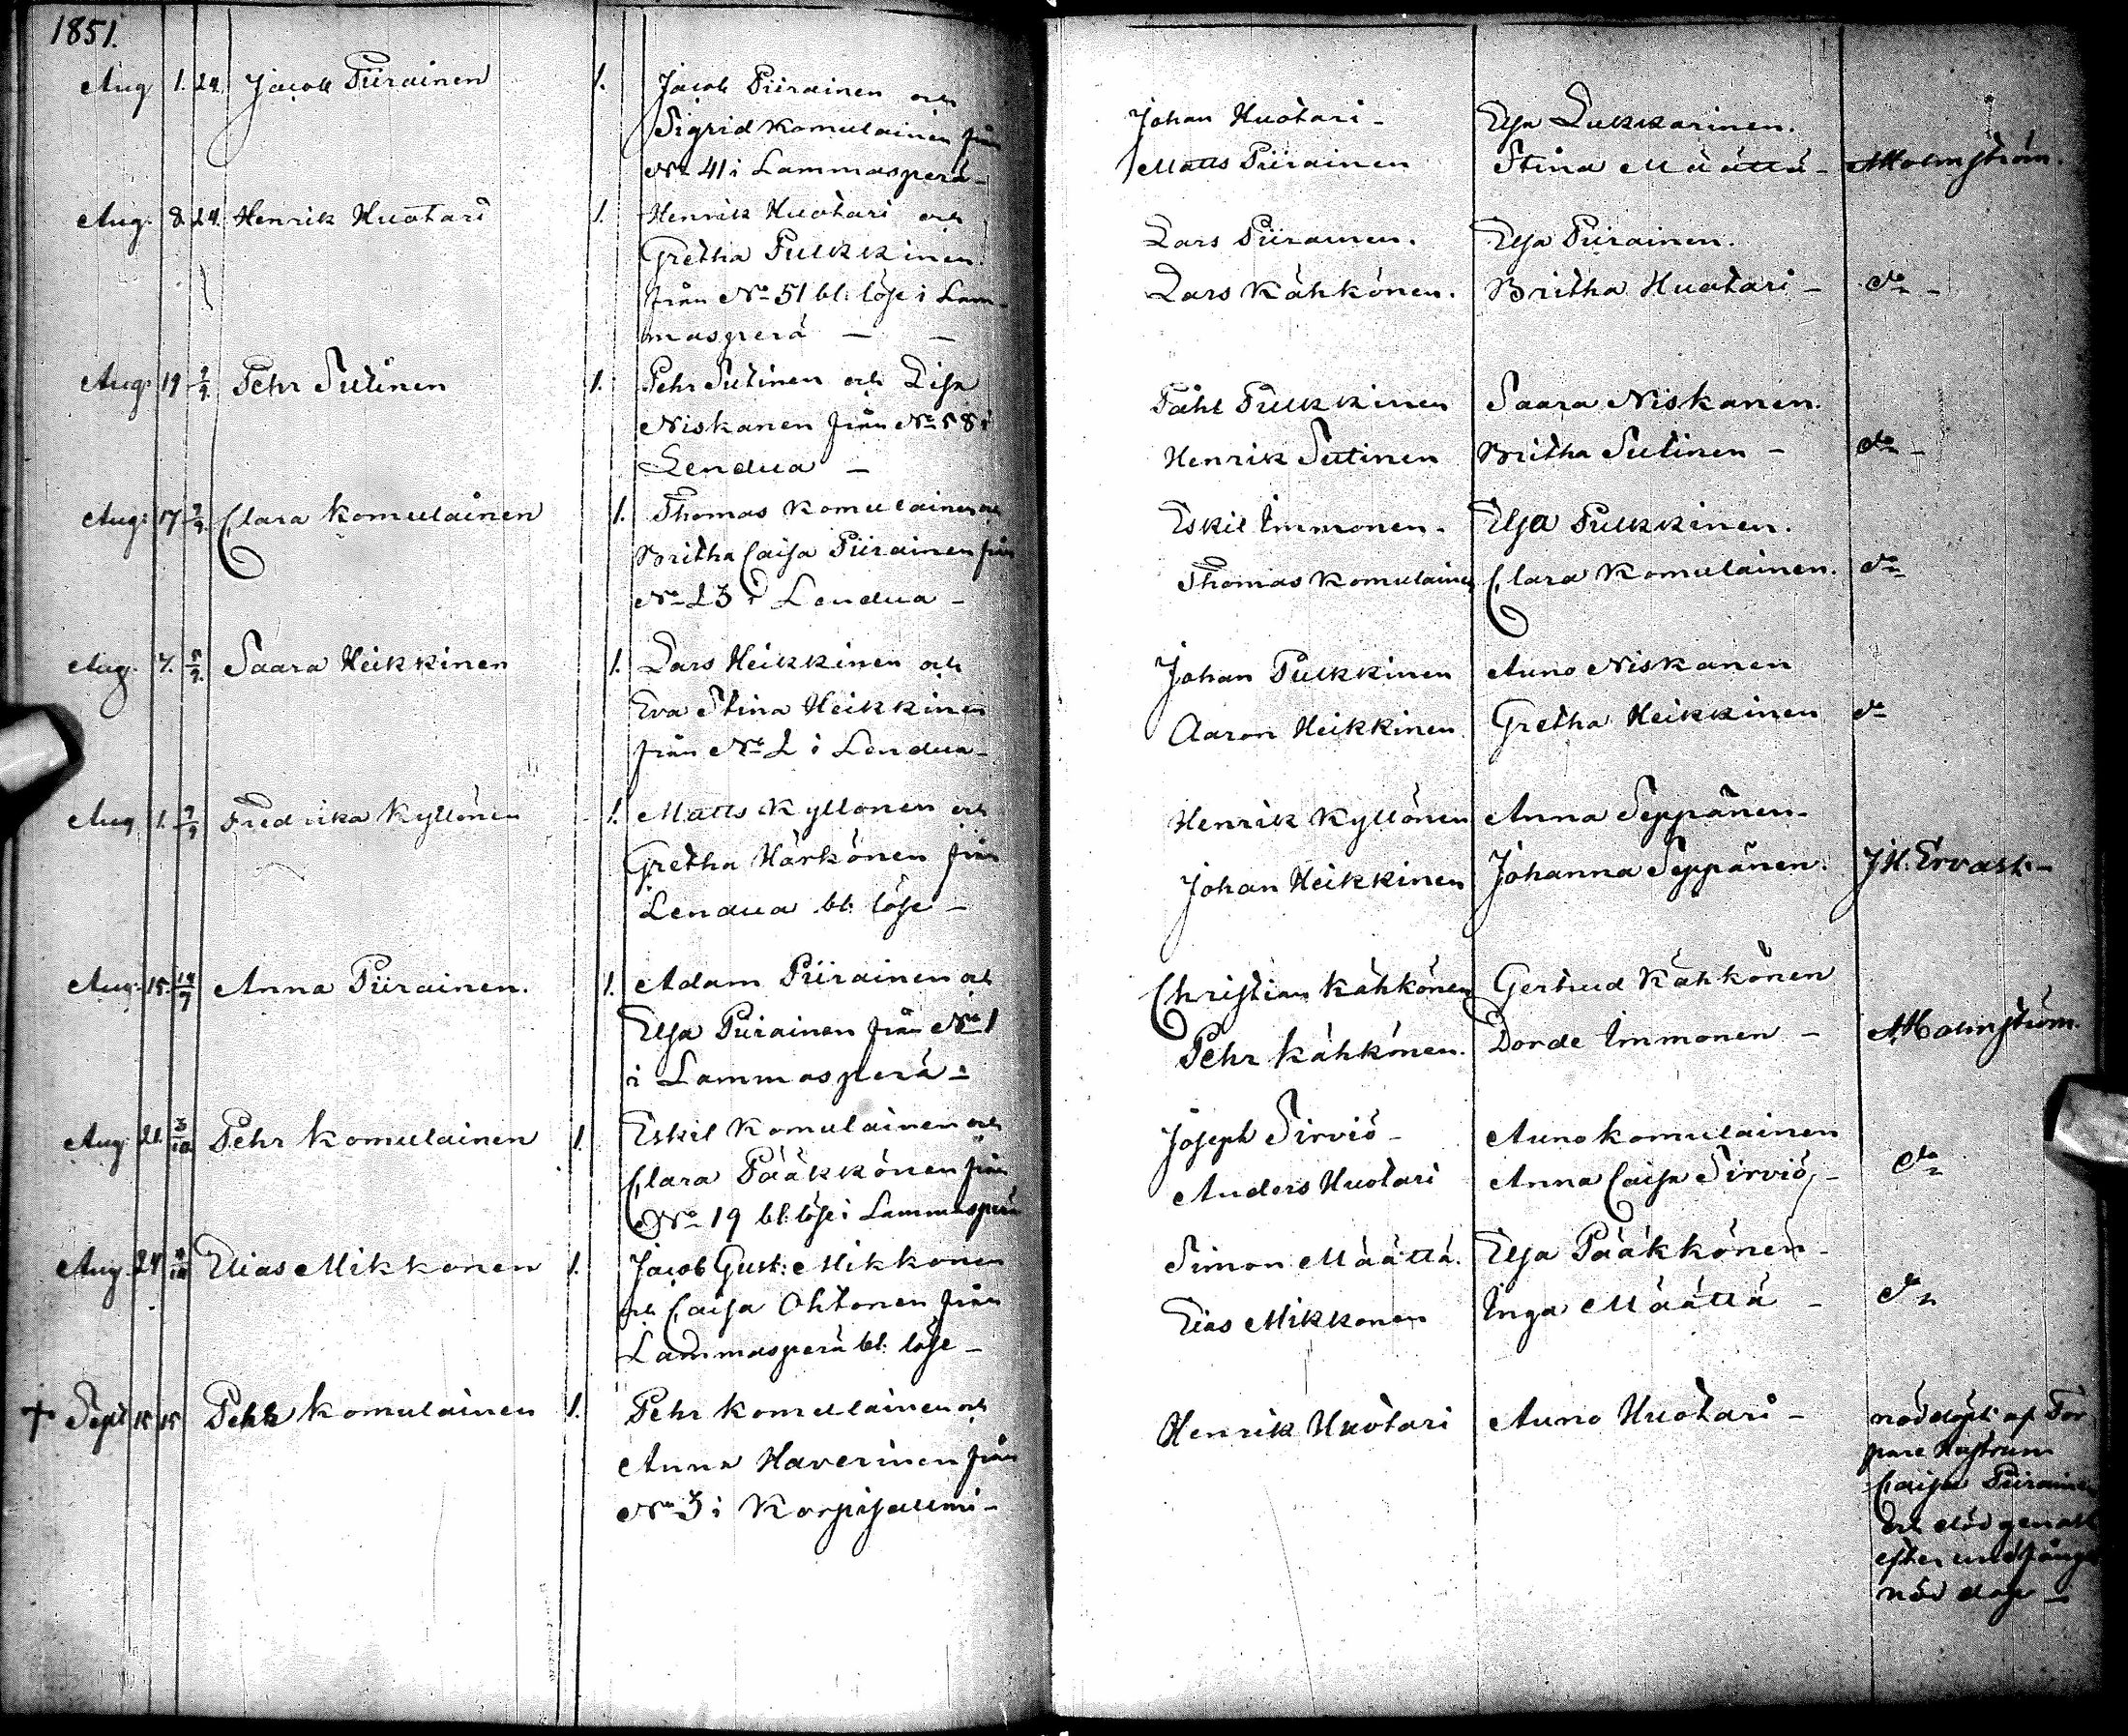 1851.
Aug 1. 24. Jacob Piirainen 1. Jacob Piirainen och
Sigrid Komulainen från
No 41 i Lammasperä -
Johan Huotari - Elsa Lukkarinen.
Matts Piirainen Stina Määttä - A Holmström.
Aug. 8. 24. Henrik Huotari 1. Henrik Huotari och
Gretha Pulkkinen
från No 51 bl: löse i Lam-
masperä - -
Lars Piirainen. Elsa Piirainen.
Lars Kähkönen. Britha Huotari - do -
Aug: 19 Pehr Sutinen 1. Pehr Sutinen och Lisa
Niskanen från No 58 i
Lendua -
Påhl Pulkkinen Saara Niskanen.
Henrik Sutinen Britha Sutinen - do -
Aug: 17 Clara Komulainen 1. Thomas Komulainen och
Britha Caisa Piirainen från
No 23 i Lendua -
Eskil Immonen. Elsa Pulkkinen.
Thomas Komulainen Clara Komulainen. do
Aug. 7. Saara Heikkinen 1. Lars Heikkinen och
Eva Stina Heikkinen
från No 2 i Lendua -
Johan Pulkkinen Auno Niskanen
Aaron Heikkinen Gretha Heikkinen do
Aug. 1. 7/9 Fredrika Kyllönen 1. Matts Kyllönen och
Gretha Härkönen från
Lendua bl: löse -
Henrik Kyllönen Anna Seppänen -
Johan Heikkinen Johanna Seppänen. J H. Ervast. -
Aug. 15. 14/9 Anna Piirainen. 1. Adam Piirainen och
Elsa Piirainen från No 1
i Lammasperä -
Christian Kähkönen Gertrud Kähkönen
Pehr Kähkönen. Dorde Immonen - A Holmström.
Aug. 21. 3/10 Pehr Komulainen 1. Eskil Komulainen och
Clara Pääkkönen från
No 19 bl: löse i Lammasperä
Joseph Sirviö - Auno Komulainen
Anders Huotari Anna Caisa Sirviö - do
Aug. 24 Elias Mikkonen 1. Jacob Gust: Mikkonen
och Caisa Ohtonen från
Lammasperä bl: löse -
Simon Määttä. Elsa Pääkkönen -
Elias Mikkonen Inga Määttä - do
+ Sept 15 15 Pehr Komulainen 1. Pehr Komulainen och
Anna Haverinen från
No 3 i Korpisalmi -
Henrik Huotari Auno Huotari - nöddöpt af Tor
pare Hustrun
Caisa Piirainen
och död genast
efter undfånget
nöd dop -